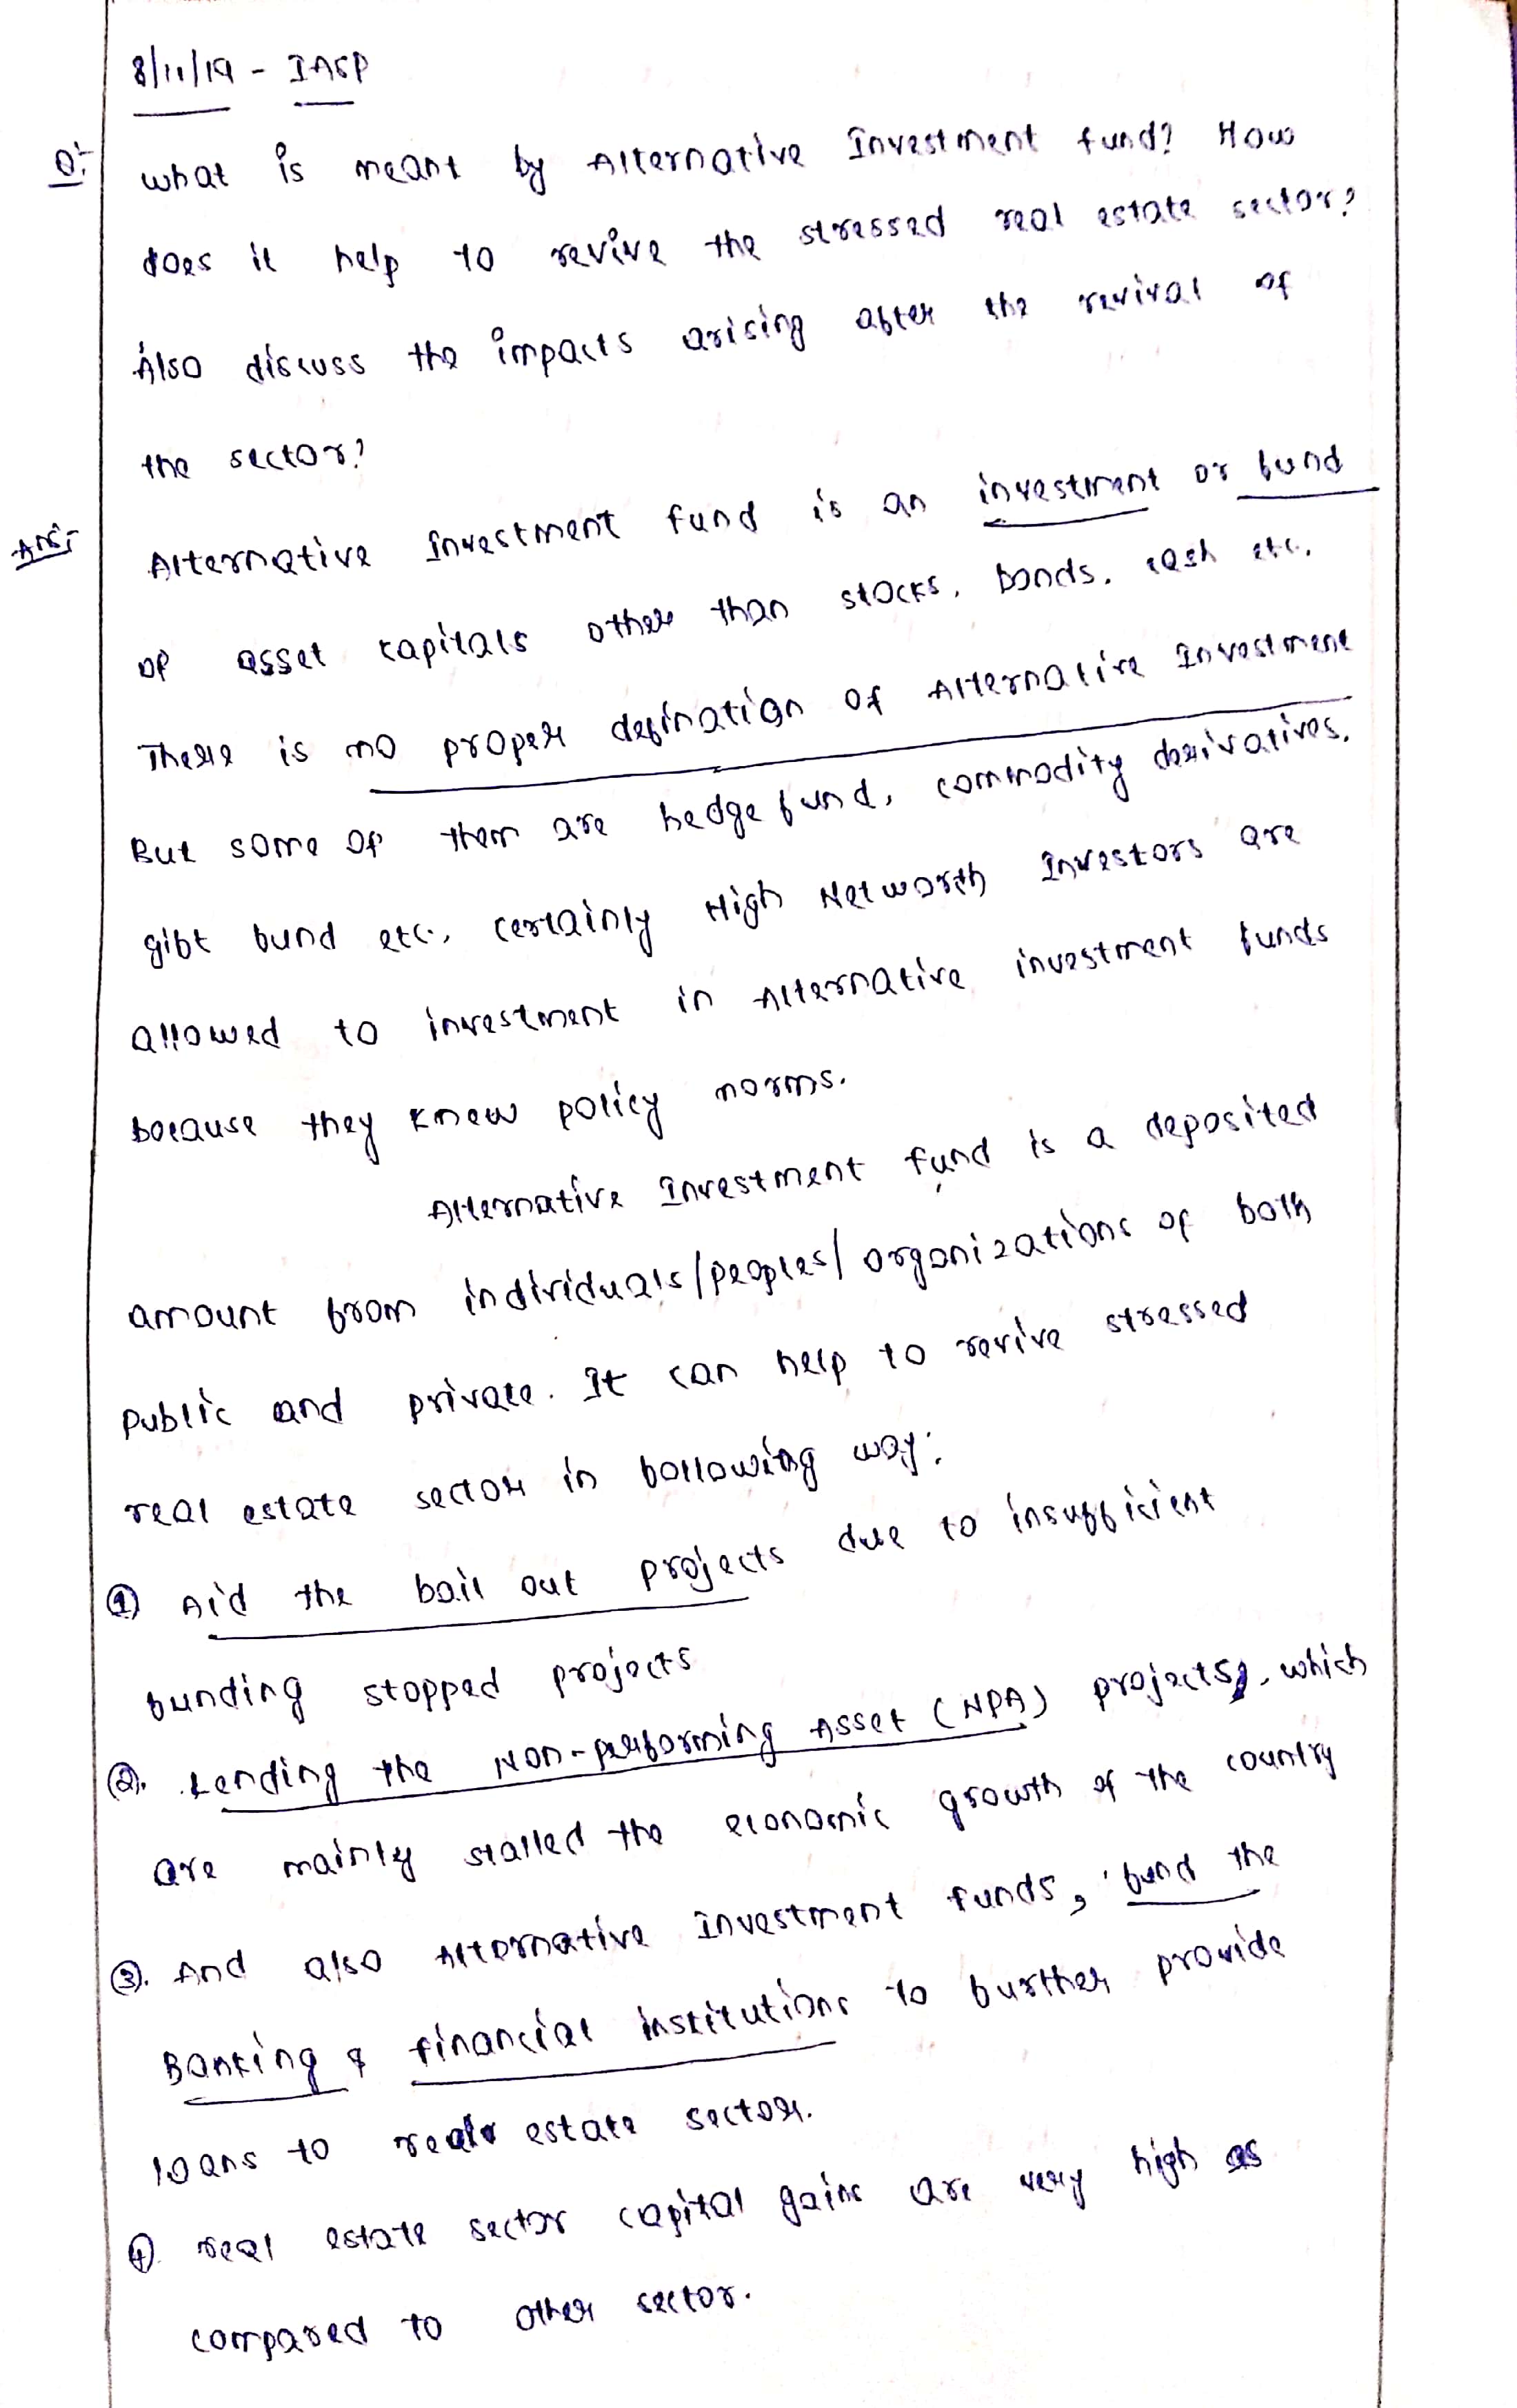 8/11/19 - IASP
Q:- what is meant by Alternative Investment fund? How
does it help to revive the stressed real estate sector?
Also discuss the impacts arising after the revival of
the sector?
Ans:- Alternative Investment fund is an investment or fund
of asset capitals other than stocks, bonds, cash etc.
There is no proper defination of Alternative Investment
But some of them are hedge fund, commodity derivatives,
gift fund etc., certainly High Networth Investors are
allowed to investment in Alternative investment funds
because they knew policy norms.
Alternative Investment fund is a deposited
amount from individuals/peoples/organizations of both
public and private. It can help to revive stressed
real estate sector in following way:
① Aid the bail out projects due to insufficient
funding stopped projects
②. Lending the Non-performing Asset (NPA) projects, which
are mainly stalled the economic growth of the country
③. And also Alternative Investment funds, fund the
Banking & financial institutions to further provide
loans to real estate sector.
④. real estate sector capital gains are very high as
compared to other sector.